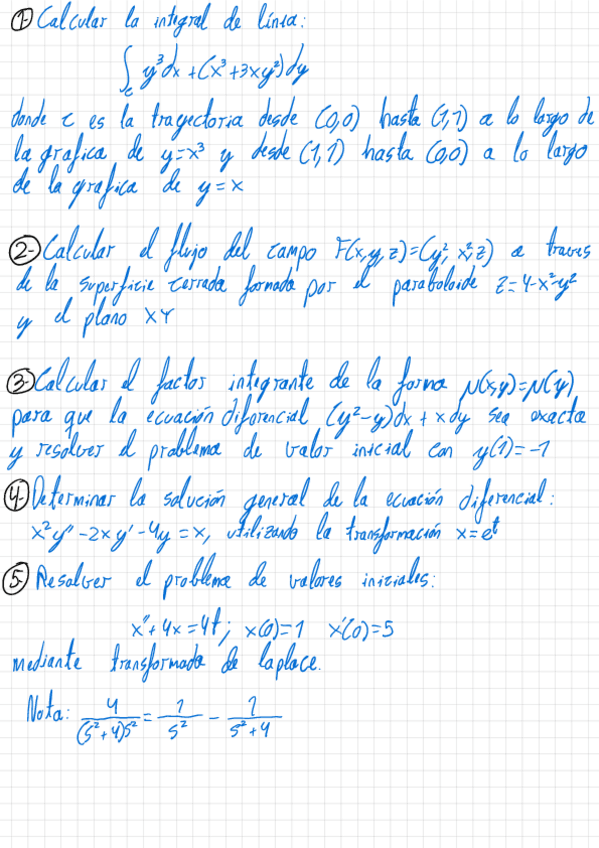 1- Calcular la integral de línea:
∫_c y³dx + (x³+3xy²)dy
donde c es la trayectoria desde (0,0) hasta (1,1) a lo largo de
la grafica de y=x³ y desde (1,1) hasta (0,0) a lo largo
de la grafica de y=x
2- Calcular el flujo del campo F(x,y,z)=(y², x², z) a traves
de la superficie cerrada formada por el paraboloide z=4-x²-y²
y el plano XY
3- Calcular el factor integrante de la forma μ(x,y)=μ(y)
para que la ecuación diferencial (y²-y)dx + x dy sea exacta
y resolver el problema de valor inicial con y(1)=-1
4- Determinar la solución general de la ecuación diferencial:
x²y''-2xy'-4y=x, utilizando la transformación x=eᵗ
5- Resolver el problema de valores iniciales:
x''+4x=4t; x(0)=1 x'(0)=5
mediante transformada de laplace.
Nota: 4/((s²+4)s²) = 1/s² - 1/(s²+4)